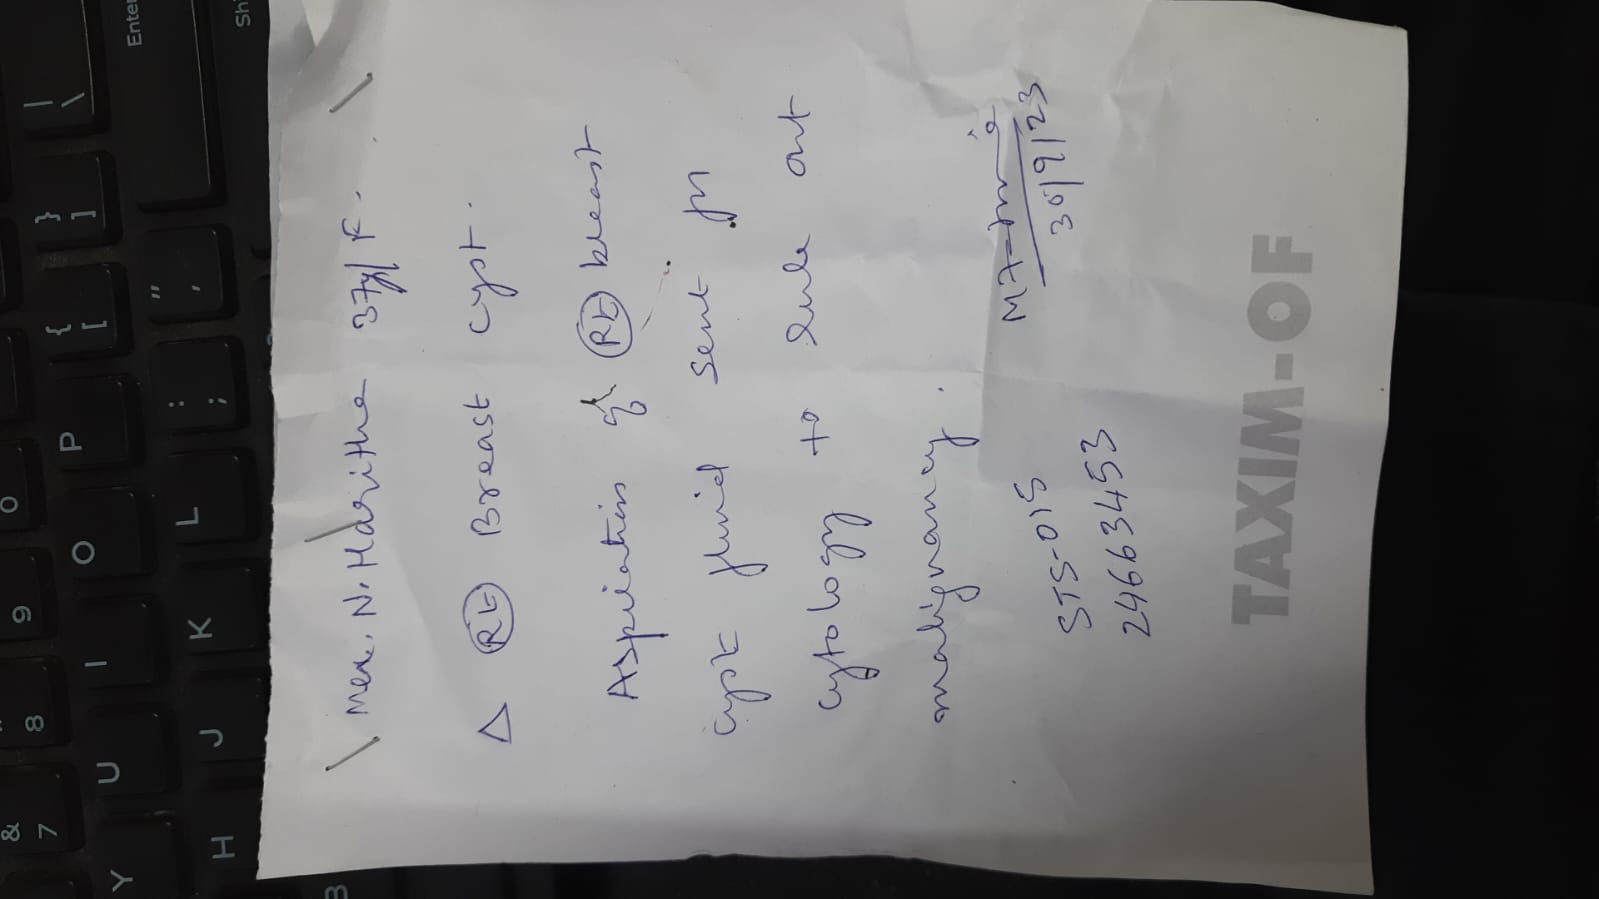 Mrs. N. Haritha 37y/F.
Δ Rt Breast cyst.
Aspiration of Rt breast
cyst fluid sent for
cytology to rule out
malignancy.
30/9/23
STS-015
24663453
TAXIM-OF
Enter
Sh
P
O
I
U
Y
L
K
J
H
B
0
9
8
& 7
{ [
} ]
| \
: ;
" '